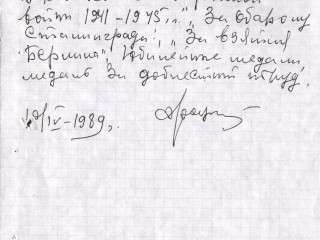 войны 1941-1945 г.г.", "За оборону
Сталинграда", "За взятие
Берлина", Юбилейные медали,
медаль За доблестный труд.
10/IV-1989г.